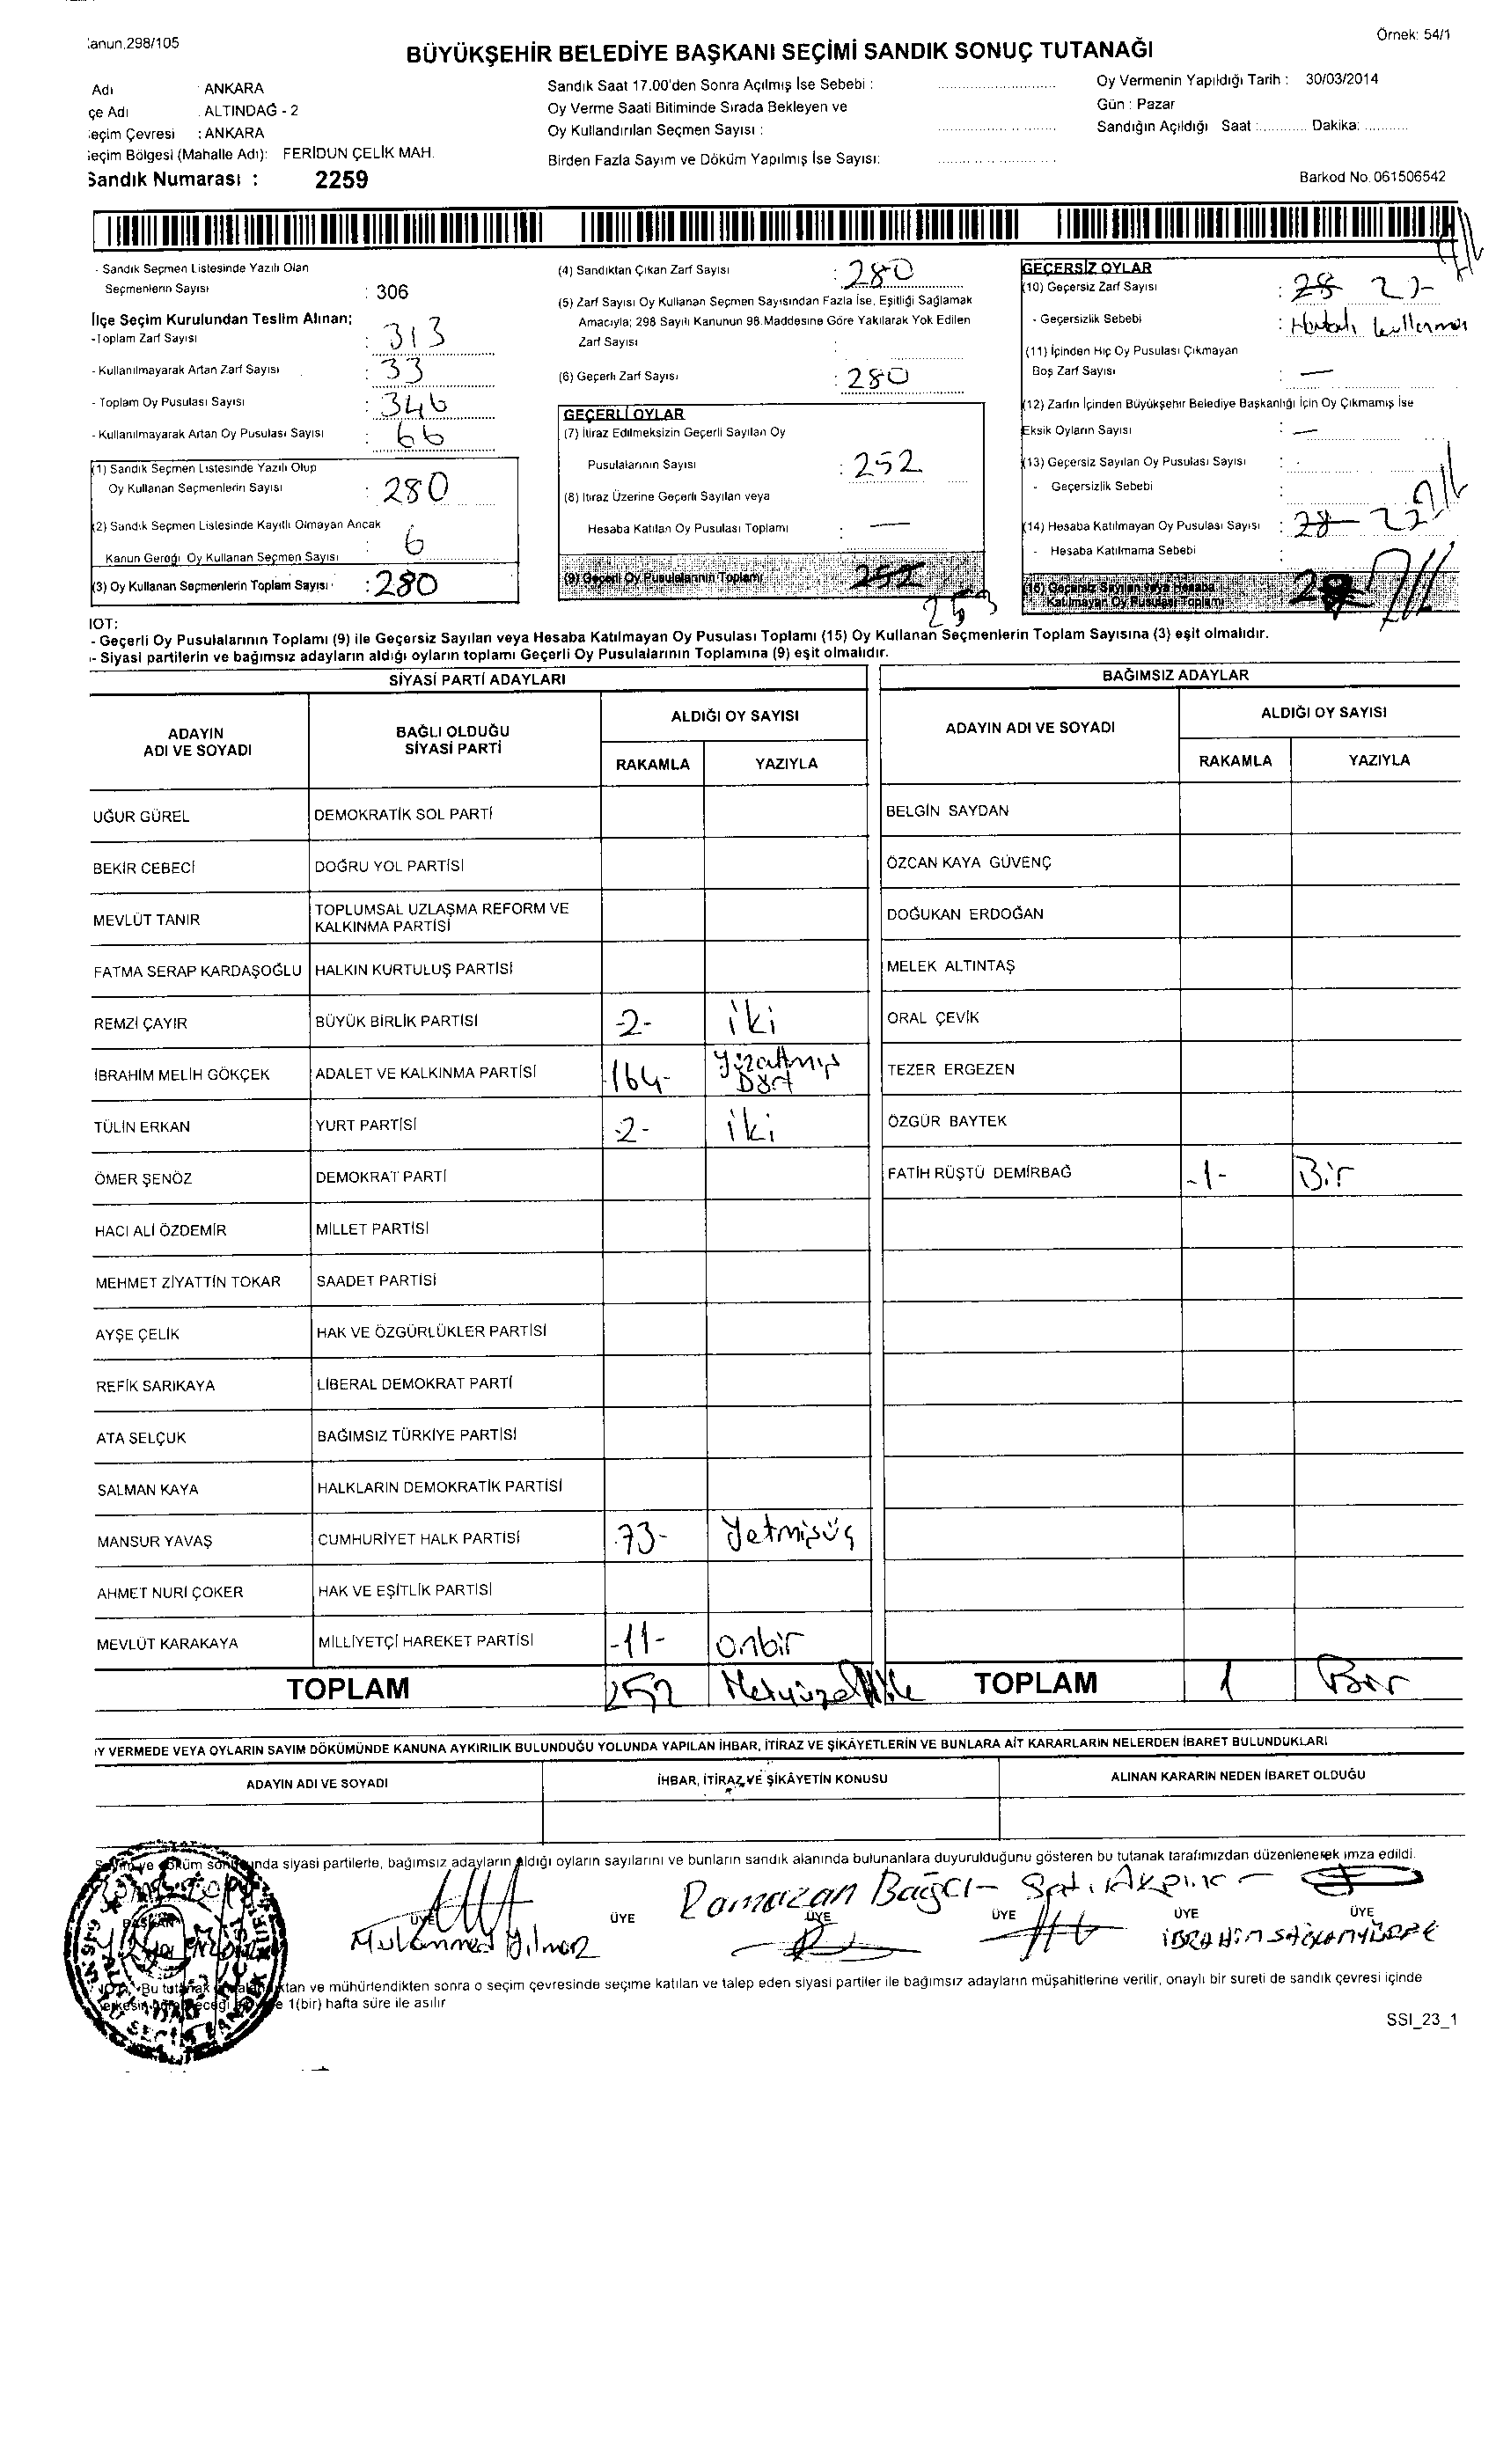 Kanun.298/105
Örnek: 54/1
BÜYÜKŞEHİR BELEDİYE BAŞKANI SEÇİMİ SANDIK SONUÇ TUTANAĞI
Adı : ANKARA
çe Adı : ALTINDAĞ - 2
eçim Çevresi : ANKARA
eçim Bölgesi (Mahalle Adı): FERİDUN ÇELİK MAH.
Sandık Numarası : 2259
Sandık Saat 17.00'den Sonra Açılmış İse Sebebi :
Oy Verme Saati Bitiminde Sırada Bekleyen ve
Oy Kullandırılan Seçmen Sayısı :
Birden Fazla Sayım ve Döküm Yapılmış İse Sayısı:
Oy Vermenin Yapıldığı Tarih : 30/03/2014
Gün : Pazar
Sandığın Açıldığı Saat :............ Dakika: ...........
Barkod No.061506542
- Sandık Seçmen Listesinde Yazılı Olan
Seçmenlerin Sayısı : 306
İlçe Seçim Kurulundan Teslim Alınan;
-Toplam Zarf Sayısı : 313
- Kullanılmayarak Artan Zarf Sayısı : 33
- Toplam Oy Pusulası Sayısı : 346
- Kullanılmayarak Artan Oy Pusulası Sayısı : 66
(1) Sandık Seçmen Listesinde Yazılı Olup
Oy Kullanan Seçmenlerin Sayısı : 280
(2) Sandık Seçmen Listesinde Kayıtlı Olmayan Ancak
Kanun Gereği Oy Kullanan Seçmen Sayısı : 6
(3) Oy Kullanan Seçmenlerin Toplam Sayısı : 280
(4) Sandıktan Çıkan Zarf Sayısı : 280
(5) Zarf Sayısı Oy Kullanan Seçmen Sayısından Fazla İse, Eşitliği Sağlamak
Amacıyla; 298 Sayılı Kanunun 98.Maddesine Göre Yakılarak Yok Edilen
Zarf Sayısı :
(6) Geçerli Zarf Sayısı : 280
GEÇERLİ OYLAR
(7) İtiraz Edilmeksizin Geçerli Sayılan Oy
Pusulalarının Sayısı : 252
(8) İtiraz Üzerine Geçerli Sayılan veya
Hesaba Katılan Oy Pusulası Toplamı : —
(9) Geçerli Oy Pusulalarının Toplamı 252
253
GEÇERSİZ OYLAR
(10) Geçersiz Zarf Sayısı : 28 27-
- Geçersizlik Sebebi : Hatalı kullanma
(11) İçinden Hiç Oy Pusulası Çıkmayan
Boş Zarf Sayısı : —
(12) Zarfın İçinden Büyükşehir Belediye Başkanlığı İçin Oy Çıkmamış İse
Eksik Oyların Sayısı : —
(13) Geçersiz Sayılan Oy Pusulası Sayısı :
- Geçersizlik Sebebi :
(14) Hesaba Katılmayan Oy Pusulası Sayısı : 28 27
- Hesaba Katılmama Sebebi :
(15) Geçersiz Sayılan veya Hesaba
Katılmayan Oy Pusulası Toplamı
NOT:
- Geçerli Oy Pusulalarının Toplamı (9) ile Geçersiz Sayılan veya Hesaba Katılmayan Oy Pusulası Toplamı (15) Oy Kullanan Seçmenlerin Toplam Sayısına (3) eşit olmalıdır.
- Siyasi partilerin ve bağımsız adayların aldığı oyların toplamı Geçerli Oy Pusulalarının Toplamına (9) eşit olmalıdır.
SİYASİ PARTİ ADAYLARI
ADAYIN ADI VE SOYADI
BAĞLI OLDUĞU SİYASİ PARTİ
ALDIĞI OY SAYISI
RAKAMLA YAZIYLA
BAĞIMSIZ ADAYLAR
ADAYIN ADI VE SOYADI
ALDIĞI OY SAYISI
RAKAMLA YAZIYLA
UĞUR GÜREL DEMOKRATİK SOL PARTİ BELGİN SAYDAN
BEKİR CEBECİ DOĞRU YOL PARTİSİ ÖZCAN KAYA GÜVENÇ
MEVLÜT TANIR TOPLUMSAL UZLAŞMA REFORM VE KALKINMA PARTİSİ DOĞUKAN ERDOĞAN
FATMA SERAP KARDAŞOĞLU HALKIN KURTULUŞ PARTİSİ MELEK ALTINTAŞ
REMZİ ÇAYIR BÜYÜK BİRLİK PARTİSİ -2- iki ORAL ÇEVİK
İBRAHİM MELİH GÖKÇEK ADALET VE KALKINMA PARTİSİ 164- Yüzaltmış Dört TEZER ERGEZEN
TÜLİN ERKAN YURT PARTİSİ -2- iki ÖZGÜR BAYTEK
ÖMER ŞENÖZ DEMOKRAT PARTİ FATİH RÜŞTÜ DEMİRBAĞ -1- Bir
HACI ALİ ÖZDEMİR MİLLET PARTİSİ
MEHMET ZİYATTİN TOKAR SAADET PARTİSİ
AYŞE ÇELİK HAK VE ÖZGÜRLÜKLER PARTİSİ
REFİK SARIKAYA LİBERAL DEMOKRAT PARTİ
ATA SELÇUK BAĞIMSIZ TÜRKİYE PARTİSİ
SALMAN KAYA HALKLARIN DEMOKRATİK PARTİSİ
MANSUR YAVAŞ CUMHURİYET HALK PARTİSİ -73- Yetmişüç
AHMET NURİ ÇOKER HAK VE EŞİTLİK PARTİSİ
MEVLÜT KARAKAYA MİLLİYETÇİ HAREKET PARTİSİ -11- onbir
TOPLAM 252 TOPLAM 1 Bir
Y VERMEDE VEYA OYLARIN SAYIM DÖKÜMÜNDE KANUNA AYKIRILIK BULUNDUĞU YOLUNDA YAPILAN İHBAR, İTİRAZ VE ŞİKÂYETLERİN VE BUNLARA AİT KARARLARIN NELERDEN İBARET BULUNDUKLARI
ADAYIN ADI VE SOYADI İHBAR, İTİRAZ VE ŞİKÂYETİN KONUSU ALINAN KARARIN NEDEN İBARET OLDUĞU
Sayım ve döküm sonucunda siyasi partilerle, bağımsız adayların aldığı oyların sayılarını ve bunların sandık alanında bulunanlara duyurulduğunu gösteren bu tutanak tarafımızdan düzenlenerek imza edildi.
Ramazan Bağcı- Satı Akpınar -
BAŞKAN ÜYE ÜYE ÜYE ÜYE ÜYE ÜYE
Muhammed Yılmaz
İBRAHİM
NOT: Bu tutanak ktan ve mühürlendikten sonra o seçim çevresinde seçime katılan ve talep eden siyasi partiler ile bağımsız adayların müşahitlerine verilir, onaylı bir sureti de sandık çevresi içinde
1(bir) hafta süre ile asılır
SSI_23_1